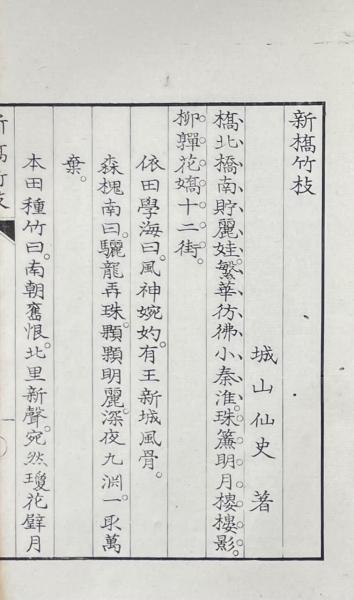 新橋竹枝
城山仙史 著
橋北橋南貯麗娃。繁華彷彿小秦淮。珠簾明月樓樓影。
柳嚲花嬌十二街。
依田學海曰。風神婉妁。有王新城風骨。
森槐南曰。驪龍再珠。顆顆明麗。深夜九淵一取萬
棄。
本田種竹曰。南朝舊恨。北里新聲。宛然瓊花璧月